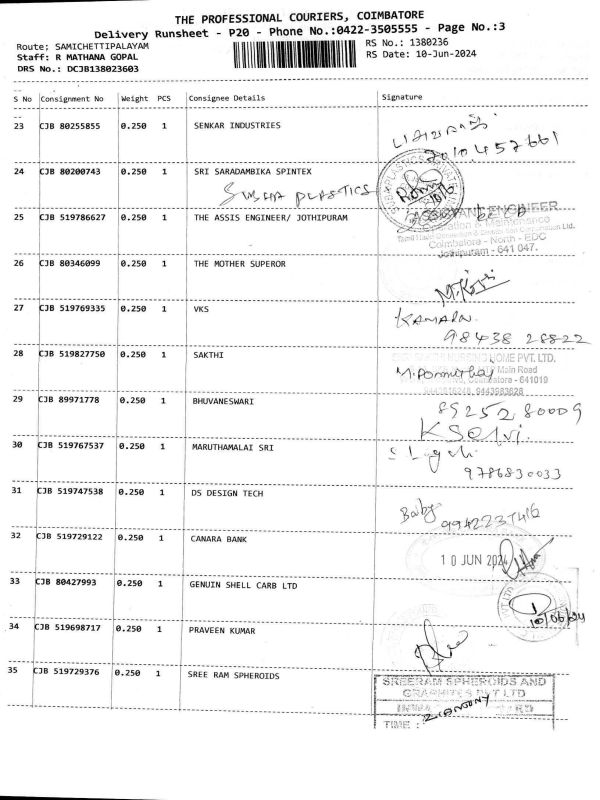 THE PROFESSIONAL COURIERS, COIMBATORE
Delivery Runsheet - P20 - Phone No.:0422-3505555 - Page No.:3
Route; SAMICHETTIPALAYAM
RS No.: 1380236
Staff: R MATHANA GOPAL
RS Date: 10-Jun-2024
DRS No.: DCJB138023603
S No Consignment No Weight PCS Consignee Details Signature
23 CJB 80255855 0.250 1 SENKAR INDUSTRIES
24 CJB 80200743 0.250 1 SRI SARADAMBIKA SPINTEX
PLASTICS
25 CJB 519786627 0.250 1 THE ASSIS ENGINEER/ JOTHIPURAM
ASSISTANT ENGINEER
Operation & Maintenance
Coimbatore - North - EDC
Jothipuram - 641 047.
26 CJB 80346099 0.250 1 THE MOTHER SUPEROR
27 CJB 519769335 0.250 1 VKS
98438 28822
28 CJB 519827750 0.250 1 SAKTHI
NURSING HOME PVT. LTD.
Main Road
Coimbatore - 641019
29 CJB 89971778 0.250 1 BHUVANESWARI
89252 80009
K Selvi.
30 CJB 519767537 0.250 1 MARUTHAMALAI SRI
9786830033
31 CJB 519747538 0.250 1 DS DESIGN TECH
Baby
9942237416
32 CJB 519729122 0.250 1 CANARA BANK
10 JUN 2024
33 CJB 80427993 0.250 1 GENUIN SHELL CARB LTD
10/06/24
34 CJB 519698717 0.250 1 PRAVEEN KUMAR
35 CJB 519729376 0.250 1 SREE RAM SPHEROIDS
SREERAM SPHEROIDS AND
GRAPHITES PVT LTD
TIME :